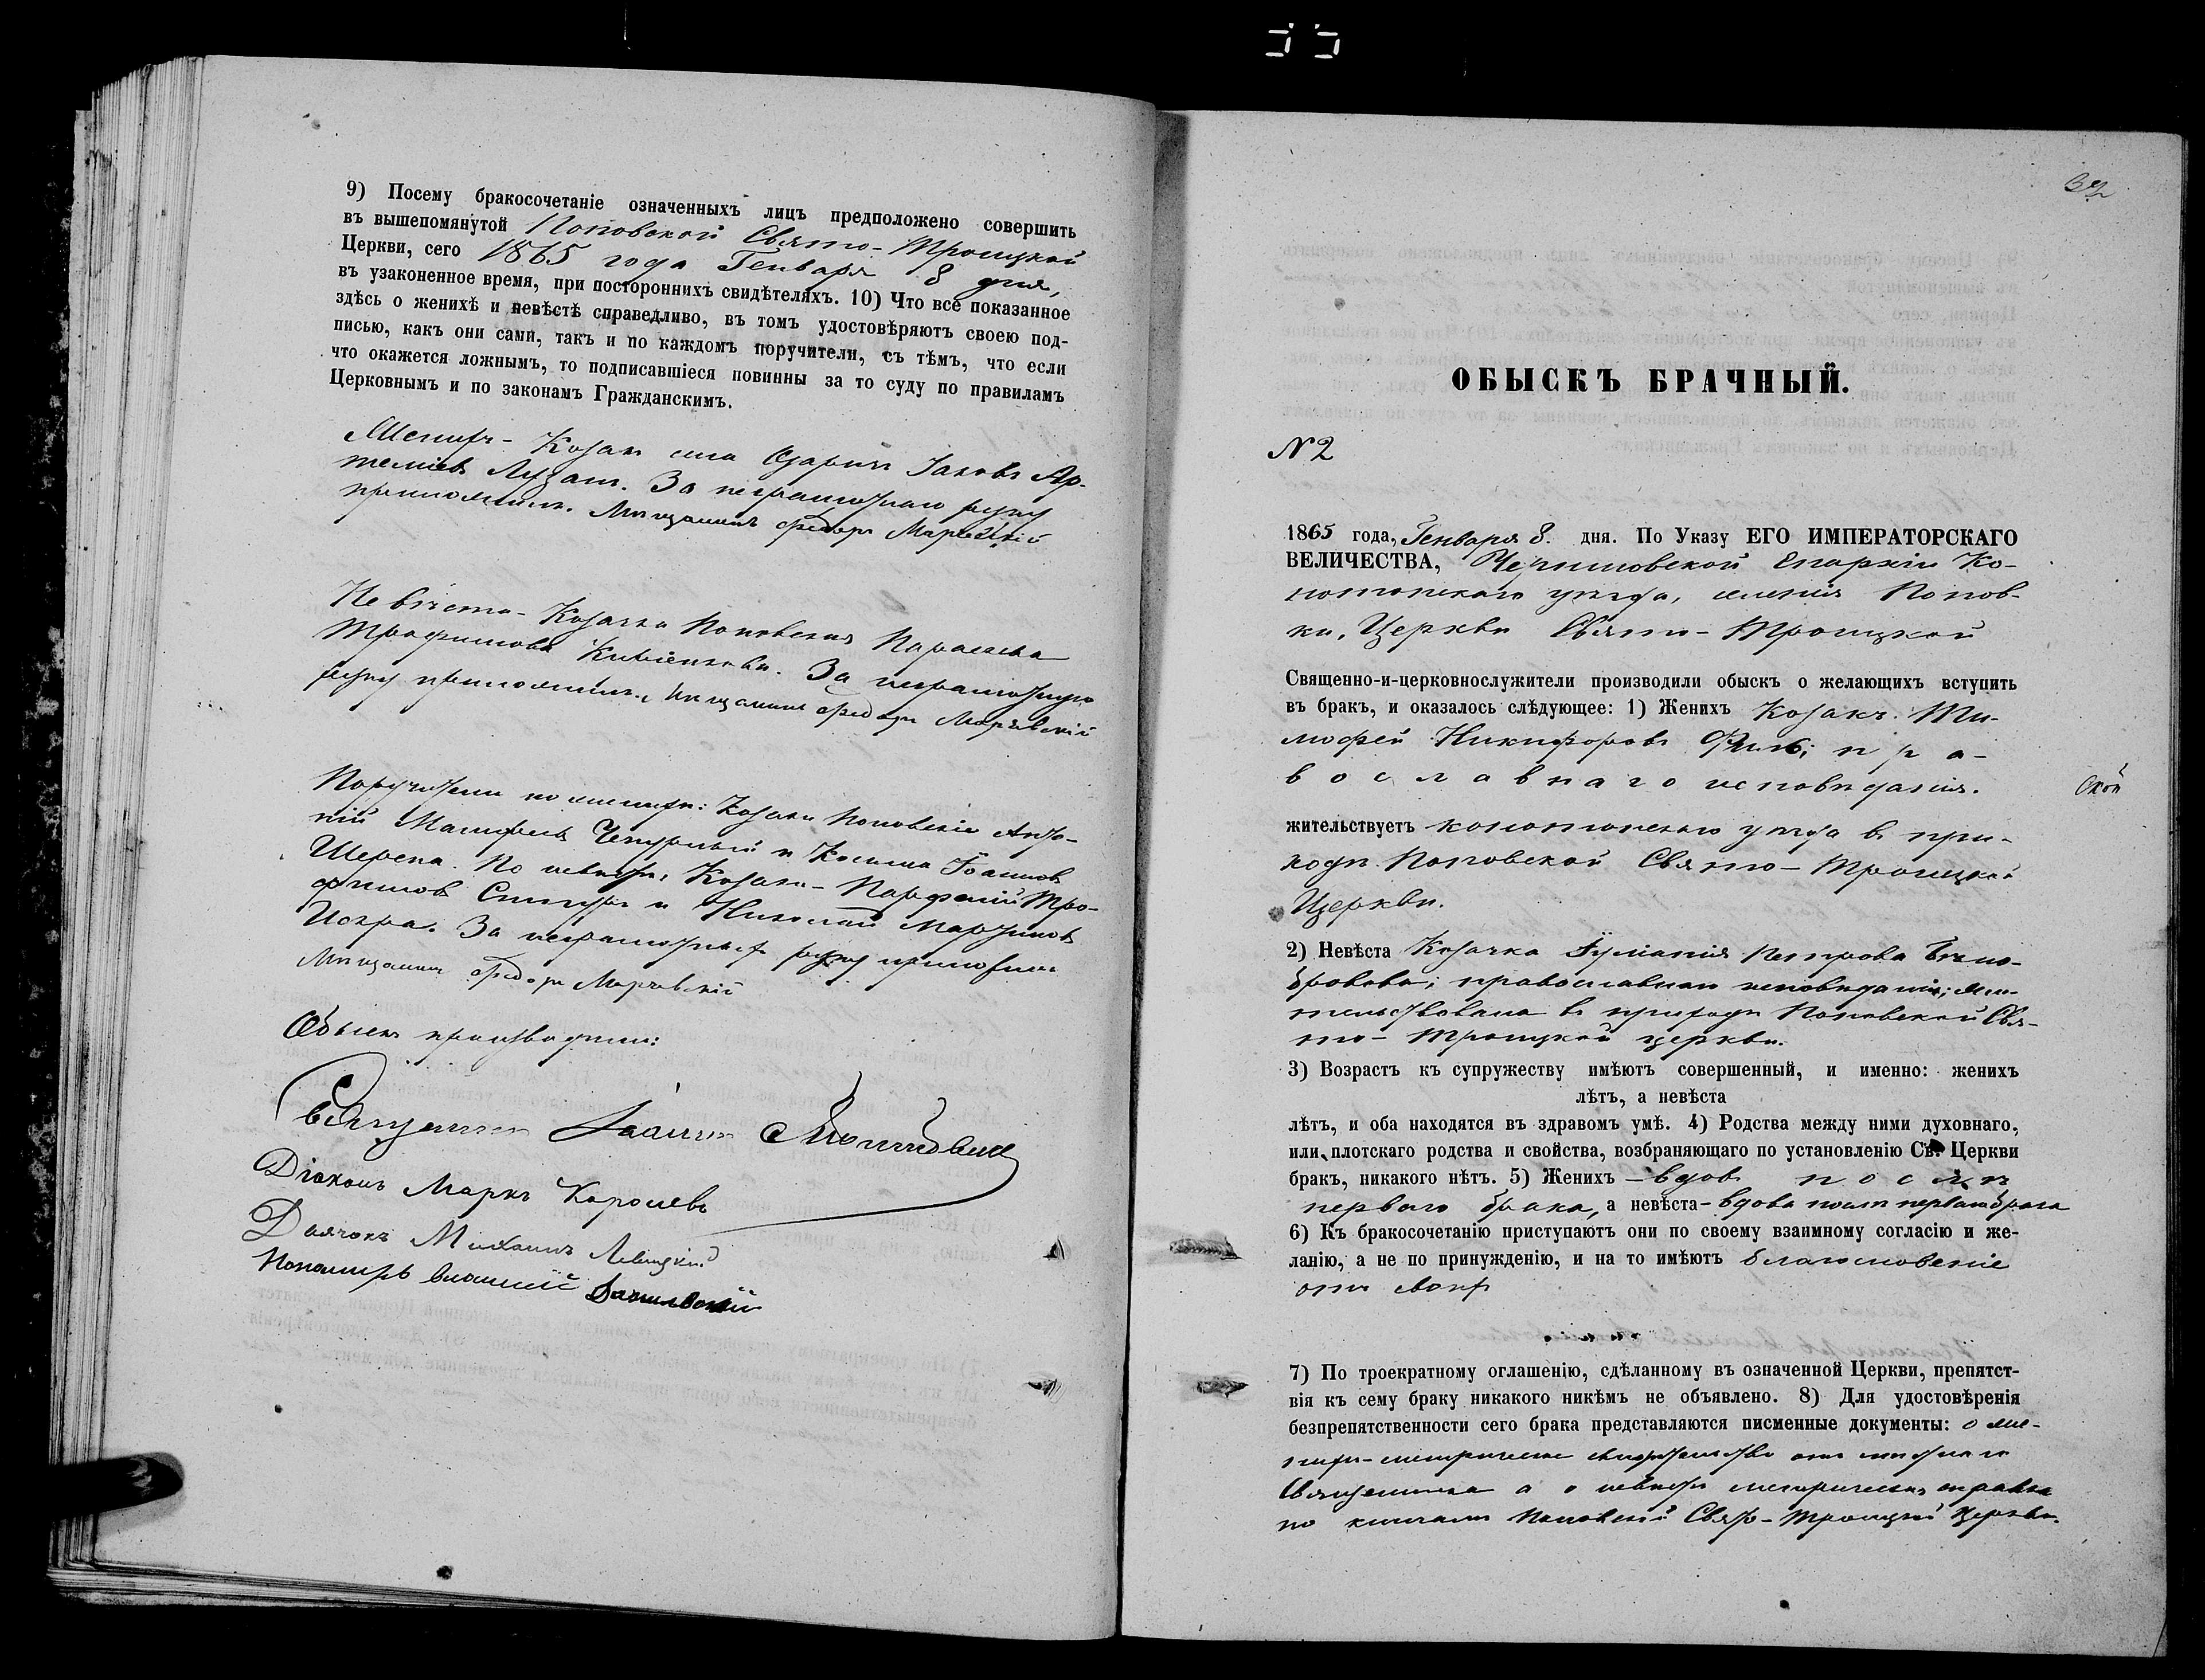 9) Посему бракосочетаніе означенныхъ лицъ предположено совершить
въ вышепомянутой Поповской Свято-Троицкой
Церкви, сего 1865 года Генваря 8 дня,
въ узаконенное время, при постороннихъ свидѣтеляхъ. 10) Что все показанное
здѣсь о женихѣ и невѣстѣ справедливо, въ томъ удостовѣряютъ своею под-
писью, какъ они сами, такъ и по каждомъ поручители, съ тѣмъ, что если
что окажется ложнымъ, то подписавшіеся повинны за то суду по правиламъ
Церковнымъ и по законамъ Гражданскимъ.
Женихъ - Козакъ села Іаковъ Ар-
теміевъ За неграмотнаго руку
приложилъ. Мѣщанинъ Федоръ
Невѣста - Козачка Поповская Параскева
Трофимова За неграмотную
руку приложилъ. Мѣщанинъ Федоръ
Поручители по женихѣ: Козаки Поповскіе Анто-
ній Чепурный и Косьма Іоанновъ
Шерепа. По невѣстѣ, Козаки - Парфеній Тро-
фимовъ и Николай Мартиновъ
Искра. За неграмотныхъ руку приложилъ
Мѣщанинъ Федоръ
Обыскъ производили:
Священникъ Іоаннъ
Діаконъ Маркъ Королевъ
Дьячокъ Михаилъ Левицкій
Пономарь
32
ОБЫСКЪ БРАЧНЫЙ.
N 2
1865 года, Генваря 8. дня. По Указу ЕГО ИМПЕРАТОРСКАГО
ВЕЛИЧЕСТВА, Черниговской Епархіи Ко-
нотопскаго уѣзда, селенія Попов-
ки, Церкви Свято-Троицкой
Священно-и-церковнослужители производили обыскъ о желающихъ вступить
въ бракъ, и оказалось слѣдующее: 1) Женихъ Козакъ Ти-
мофей Никифоровъ пра-
вославнаго исповѣданія.
жительствуетъ конотопскаго уѣзда в при-
ходѣ Поповской Свято-Троицкой
Церкви.
2) Невѣста Козачка Іуліанія Петрова Бѣло-
брова; православнаго исповѣданія; жи-
тельствовала в приходѣ Поповской Свя-
то-Троицкой церкви.
3) Возрастъ къ супружеству имѣютъ совершенный, и именно: женихъ
лѣтъ, а невѣста
лѣтъ, и оба находятся въ здравомъ умѣ. 4) Родства между ними духовнаго,
или плотскаго родства и свойства, возбраняющаго по установленію Св. Церкви
бракъ, никакого нѣтъ. 5) Женихъ - вдовъ послѣ
перваго брака, а невѣста - вдова послѣ перваго брака
6) Къ бракосочетанію приступаютъ они по своему взаимному согласію и же-
ланію, а не по принужденію, и на то имѣютъ благословеніе
отъ
7) По троекратному оглашенію, сдѣланному въ означенной Церкви, препятст-
вія къ сему браку никакого никѣмъ не объявлено. 8) Для удостовѣренія
безпрепятственности сего брака представляются писменные документы: о же-
нихѣ - метрическое свидѣтельство отъ мѣстнаго
Священника а о невѣстѣ метрическая справка
по книгамъ Поповской Свято-Троицкой Церкви.